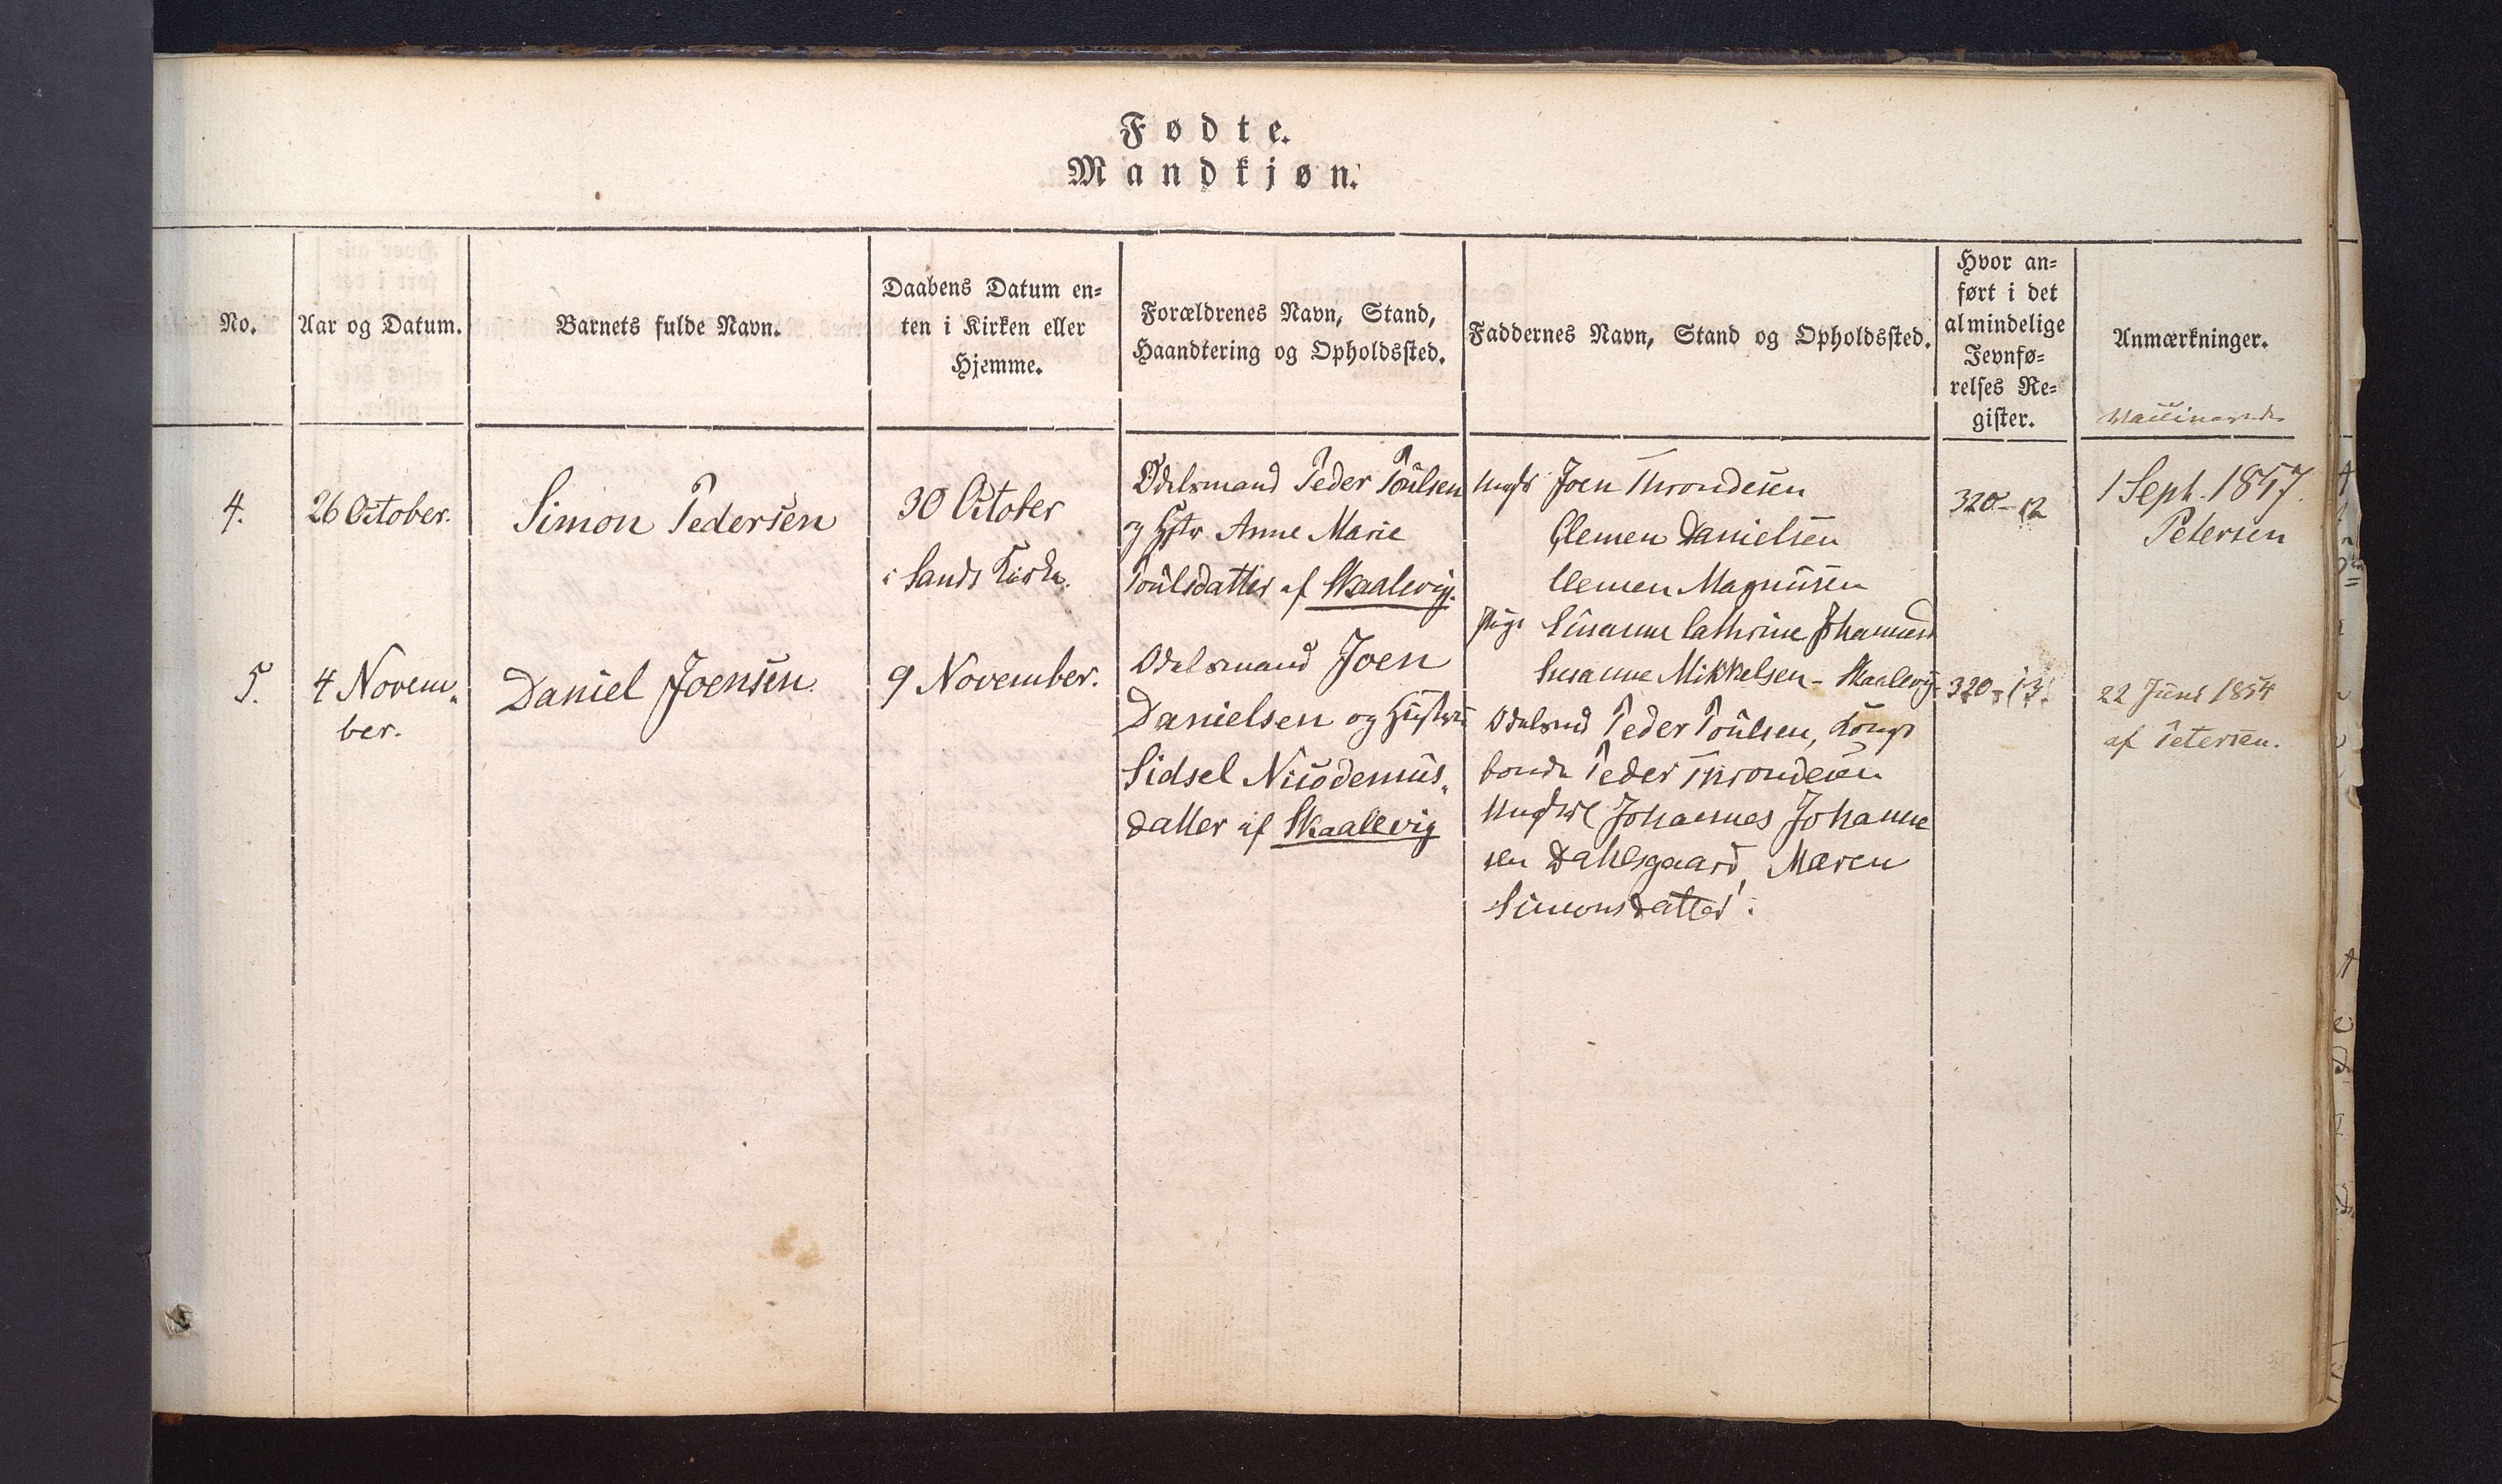 Fødte.
Mandkjøn.
No.
Aar og Datum.
Barnets fulde Navn.
Daabens Datum en-
ten i Kirken eller
Hjemme.
Forældrenes Navn, Stand,
Haandtering og Opholdssted.
Faddernes Navn, Stand og Opholdssted.
Hvor an-
ført i det
almindelige
Jevnfø-
relses Re-
gister.
Anmærkninger.
4.
26 October.
Simon Pedersen
30 October
i Sands Kirke.
Odelsmand Peder Poulsen
og Hstr Anne Marie
Poulsdatter af Skaalevig.
Joen Throndesen
Clemen Danielsen
Clemen Magnussen
Pige Susanne Cathrine Johannesd
Susanne Mikkelsen - Skaalevig
320-12
1 Sept. 1857.
Petersen
5.
4 Novem-
ber.
Daniel Joensen
9 November.
Odelsmand Joen
Danielsen og Hustru
Sidsel Nicodemus-
datter af Skaalevig
Odelsmd Peder Poulsen, Kongs
bonde Peder Throndesen
Johannes Johanne
sen Dahlsgaard, Maren
Simonsdatter.
320-13.
22 Juni 1854
af Petersen.